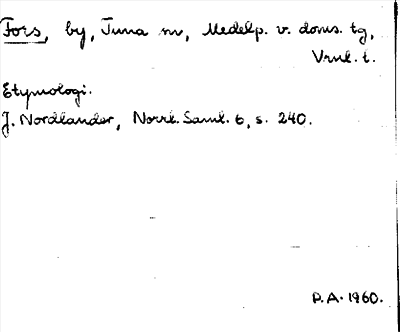 Fors, by, Tuna sn, Medelp. v. doms. tg,
Vrnl. t.
Etymologi.
J. Nordlander, Norrl. Saml. 6, s. 240.
P.A. 1960.